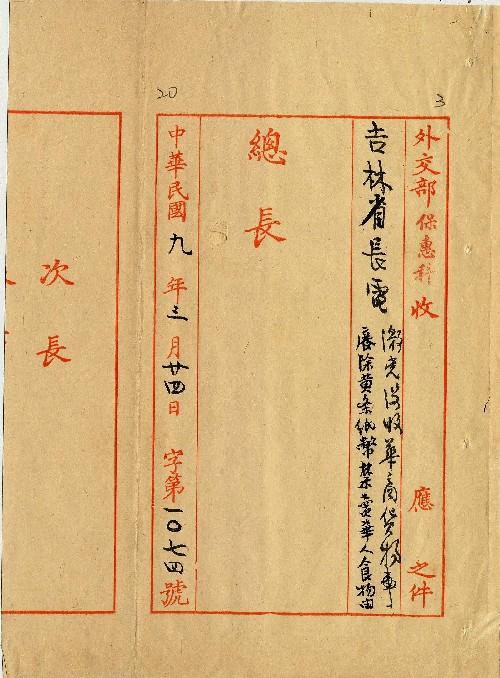 20
3
外交部保惠科收 應 之件
吉林省長電
激党沒收華商貨物事
廢除黃条紙幣禁賣華人食物由
總長
中華民國九年三月廿四日 字第一〇七四號
次長